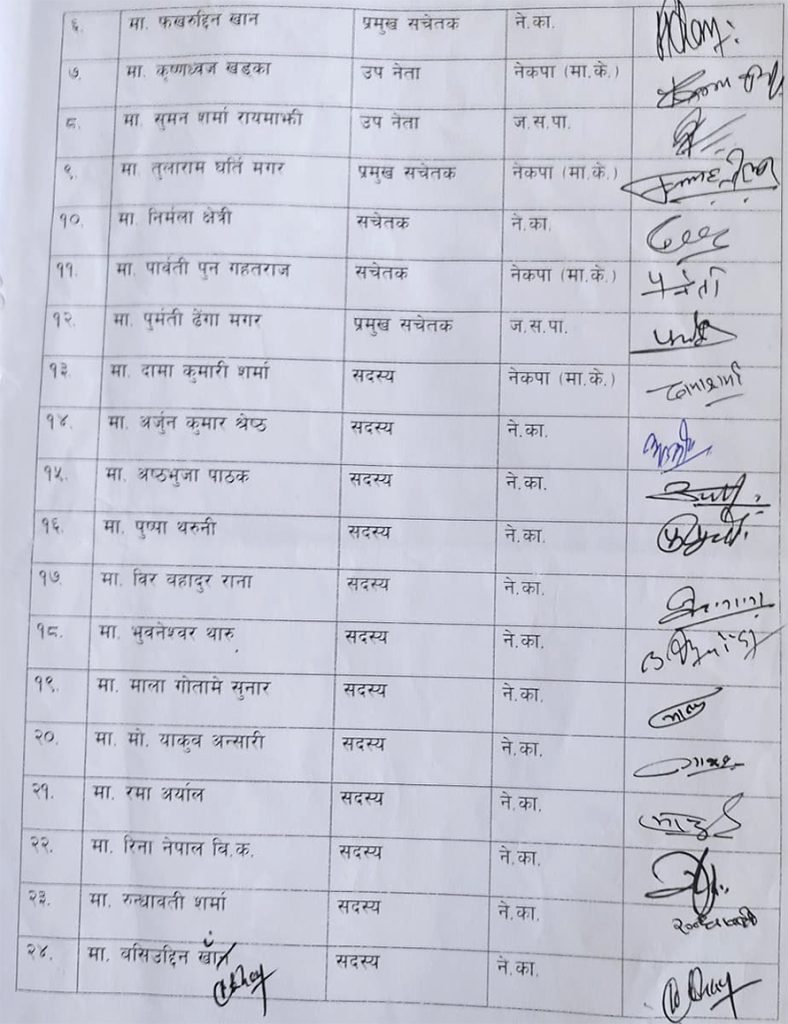 ६. मा. फखरुद्दिन खान प्रमुख सचेतक ने.का.
७. मा. कृष्णध्वज खड्का उप नेता नेकपा (मा.के.)
८. मा. सुमन शर्मा रायमाझी उप नेता ज.स.पा.
९. मा. तुलाराम घर्ति मगर प्रमुख सचेतक नेकपा (मा.के.)
१०. मा. निर्मला क्षेत्री सचेतक ने.का.
११. मा. पार्वती पुन गहतराज सचेतक नेकपा (मा.के.)
१२. मा. पुमंती ढेंगा मगर प्रमुख सचेतक ज.स.पा.
१३. मा. दामा कुमारी शर्मा सदस्य नेकपा (मा.के.)
१४. मा. अर्जुन कुमार श्रेष्ठ सदस्य ने.का.
१५. मा. अष्ठभुजा पाठक सदस्य ने.का.
१६. मा. पुष्पा थरुनी सदस्य ने.का.
१७. मा. विर वहादुर राना सदस्य ने.का.
१८. मा. भुवनेश्वर थारु सदस्य ने.का.
१९. मा. माला गोतामे सुनार सदस्य ने.का.
२०. मा. मो. याकुव अन्सारी सदस्य ने.का.
२१. मा. रमा अर्याल सदस्य ने.का.
२२. मा. रिना नेपाल वि.क. सदस्य ने.का.
२३. मा. रुन्धावती शर्मा सदस्य ने.का.
२४. मा. वसिउद्दिन खाँन सदस्य ने.का.